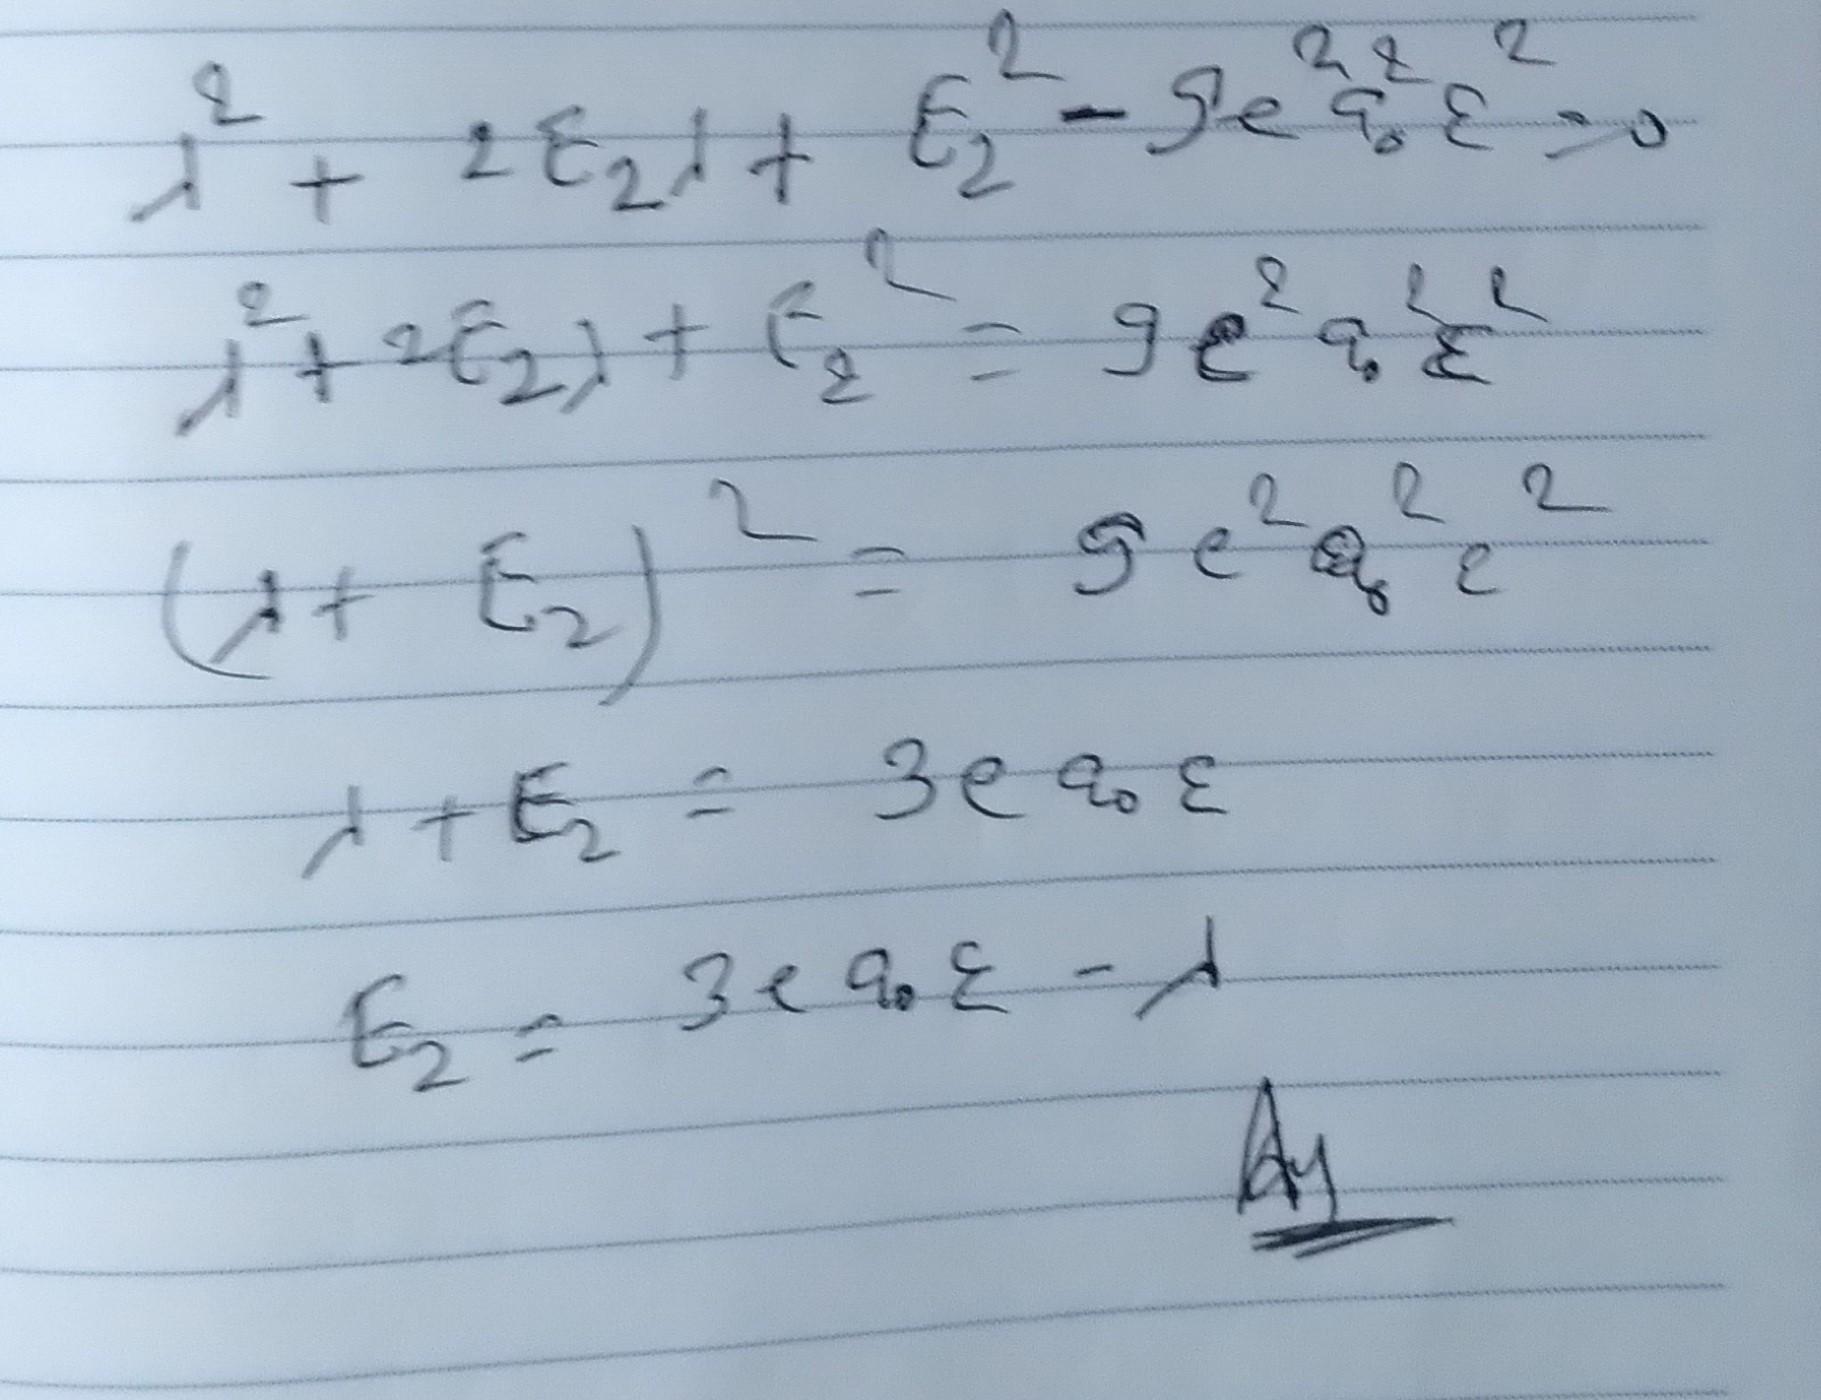 λ² + 2E₂λ + E₂² - 9e²a₀²ε² = 0
λ² + 2E₂λ + E₂² = 9e²a₀²ε²
(λ + E₂)² = 9e²a₀²ε²
λ + E₂ = 3ea₀ε
E₂ = 3ea₀ε - λ